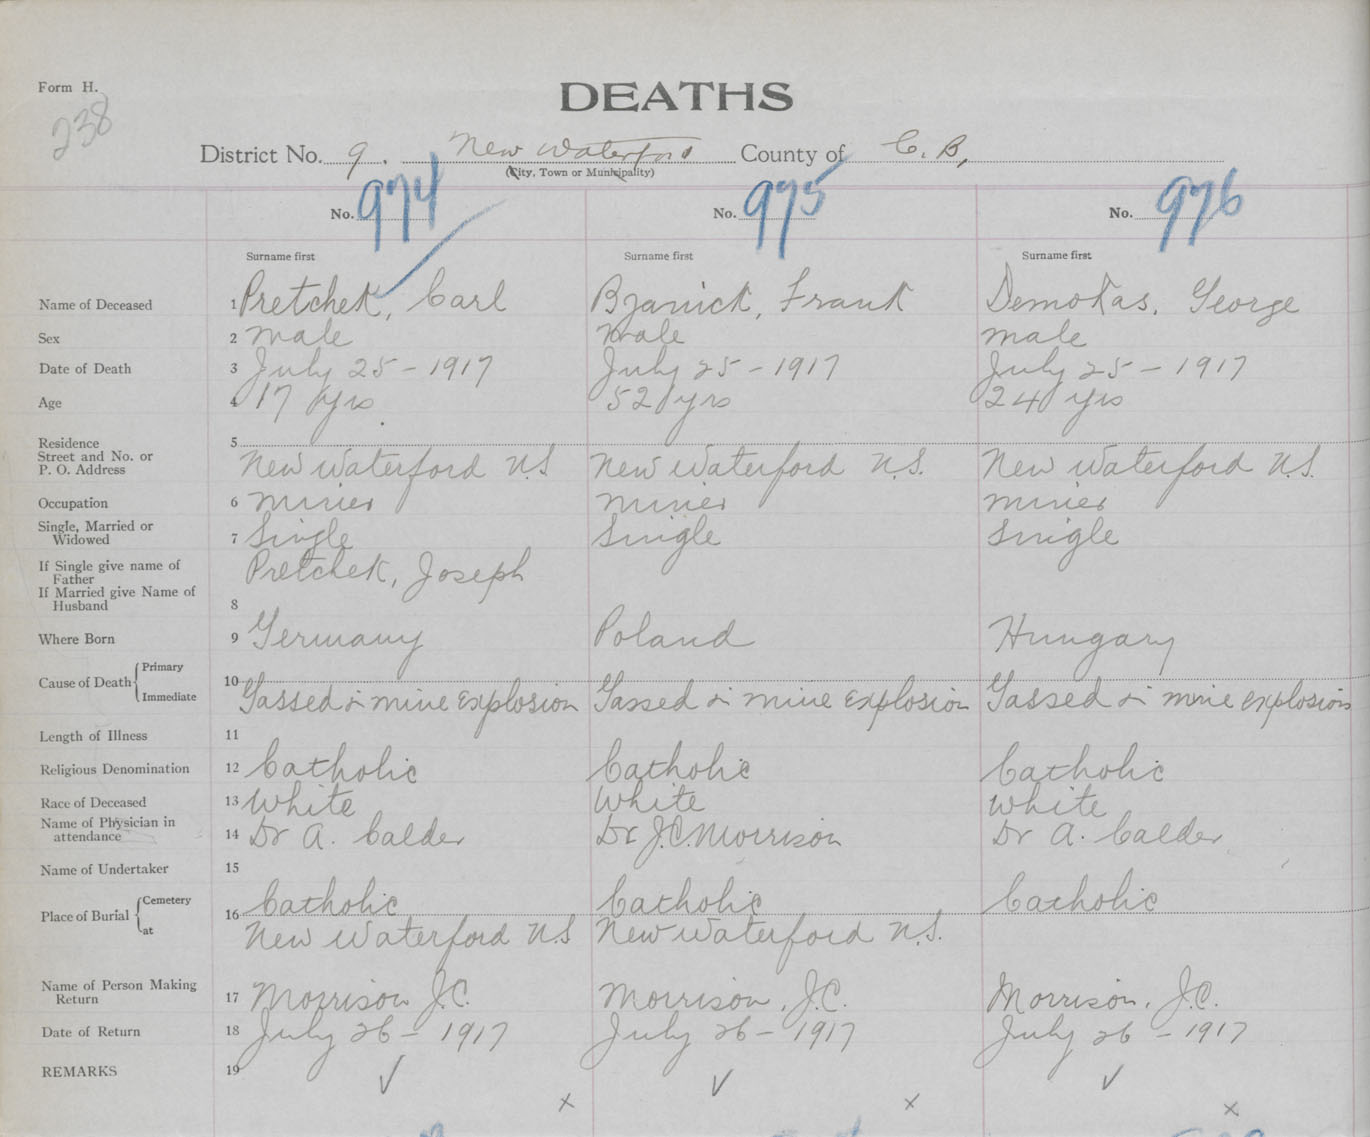 Form H.
238
DEATHS
District No. 9. New Waterford County of C. B.
(City, Town or Municipality)
No. 974 No. 975 No. 976
Surname first Surname first Surname first
Name of Deceased 1 Pretchek, Carl Bzanick, Frank Demokas, George
Sex 2 male male male
Date of Death 3 July 25 - 1917 July 25 - 1917 July 25 - 1917
Age 4 17 yrs 52 yrs 24 yrs
Residence 5
Street and No. or
P. O. Address New Waterford N.S New Waterford N.S. New Waterford N.S.
Occupation 6 miner miner miner
Single, Married or
Widowed 7 Single Single Single
If Single give name of
Father Pretchek, Joseph
If Married give Name of
Husband 8
Where Born 9 Germany Poland Hungary
Cause of Death { Primary 10
Immediate Gassed in mine explosion Gassed in mine explosion Gassed in mine explosion
Length of Illness 11
Religious Denomination 12 Catholic Catholic Catholic
Race of Deceased 13 White White White
Name of Physician in
attendance 14 Dr A. Calder Dr J.C. Morrison Dr A. Calder
Name of Undertaker 15
Place of Burial { Cemetery 16 Catholic Catholic Catholic
at New Waterford N.S New Waterford N.S.
Name of Person Making
Return 17 Morrison J.C. Morrison, J.C. Morrison, J.C.
Date of Return 18 July 26 - 1917 July 26 - 1917 July 26 - 1917
REMARKS 19 ✓ ✓ ✓
x x x